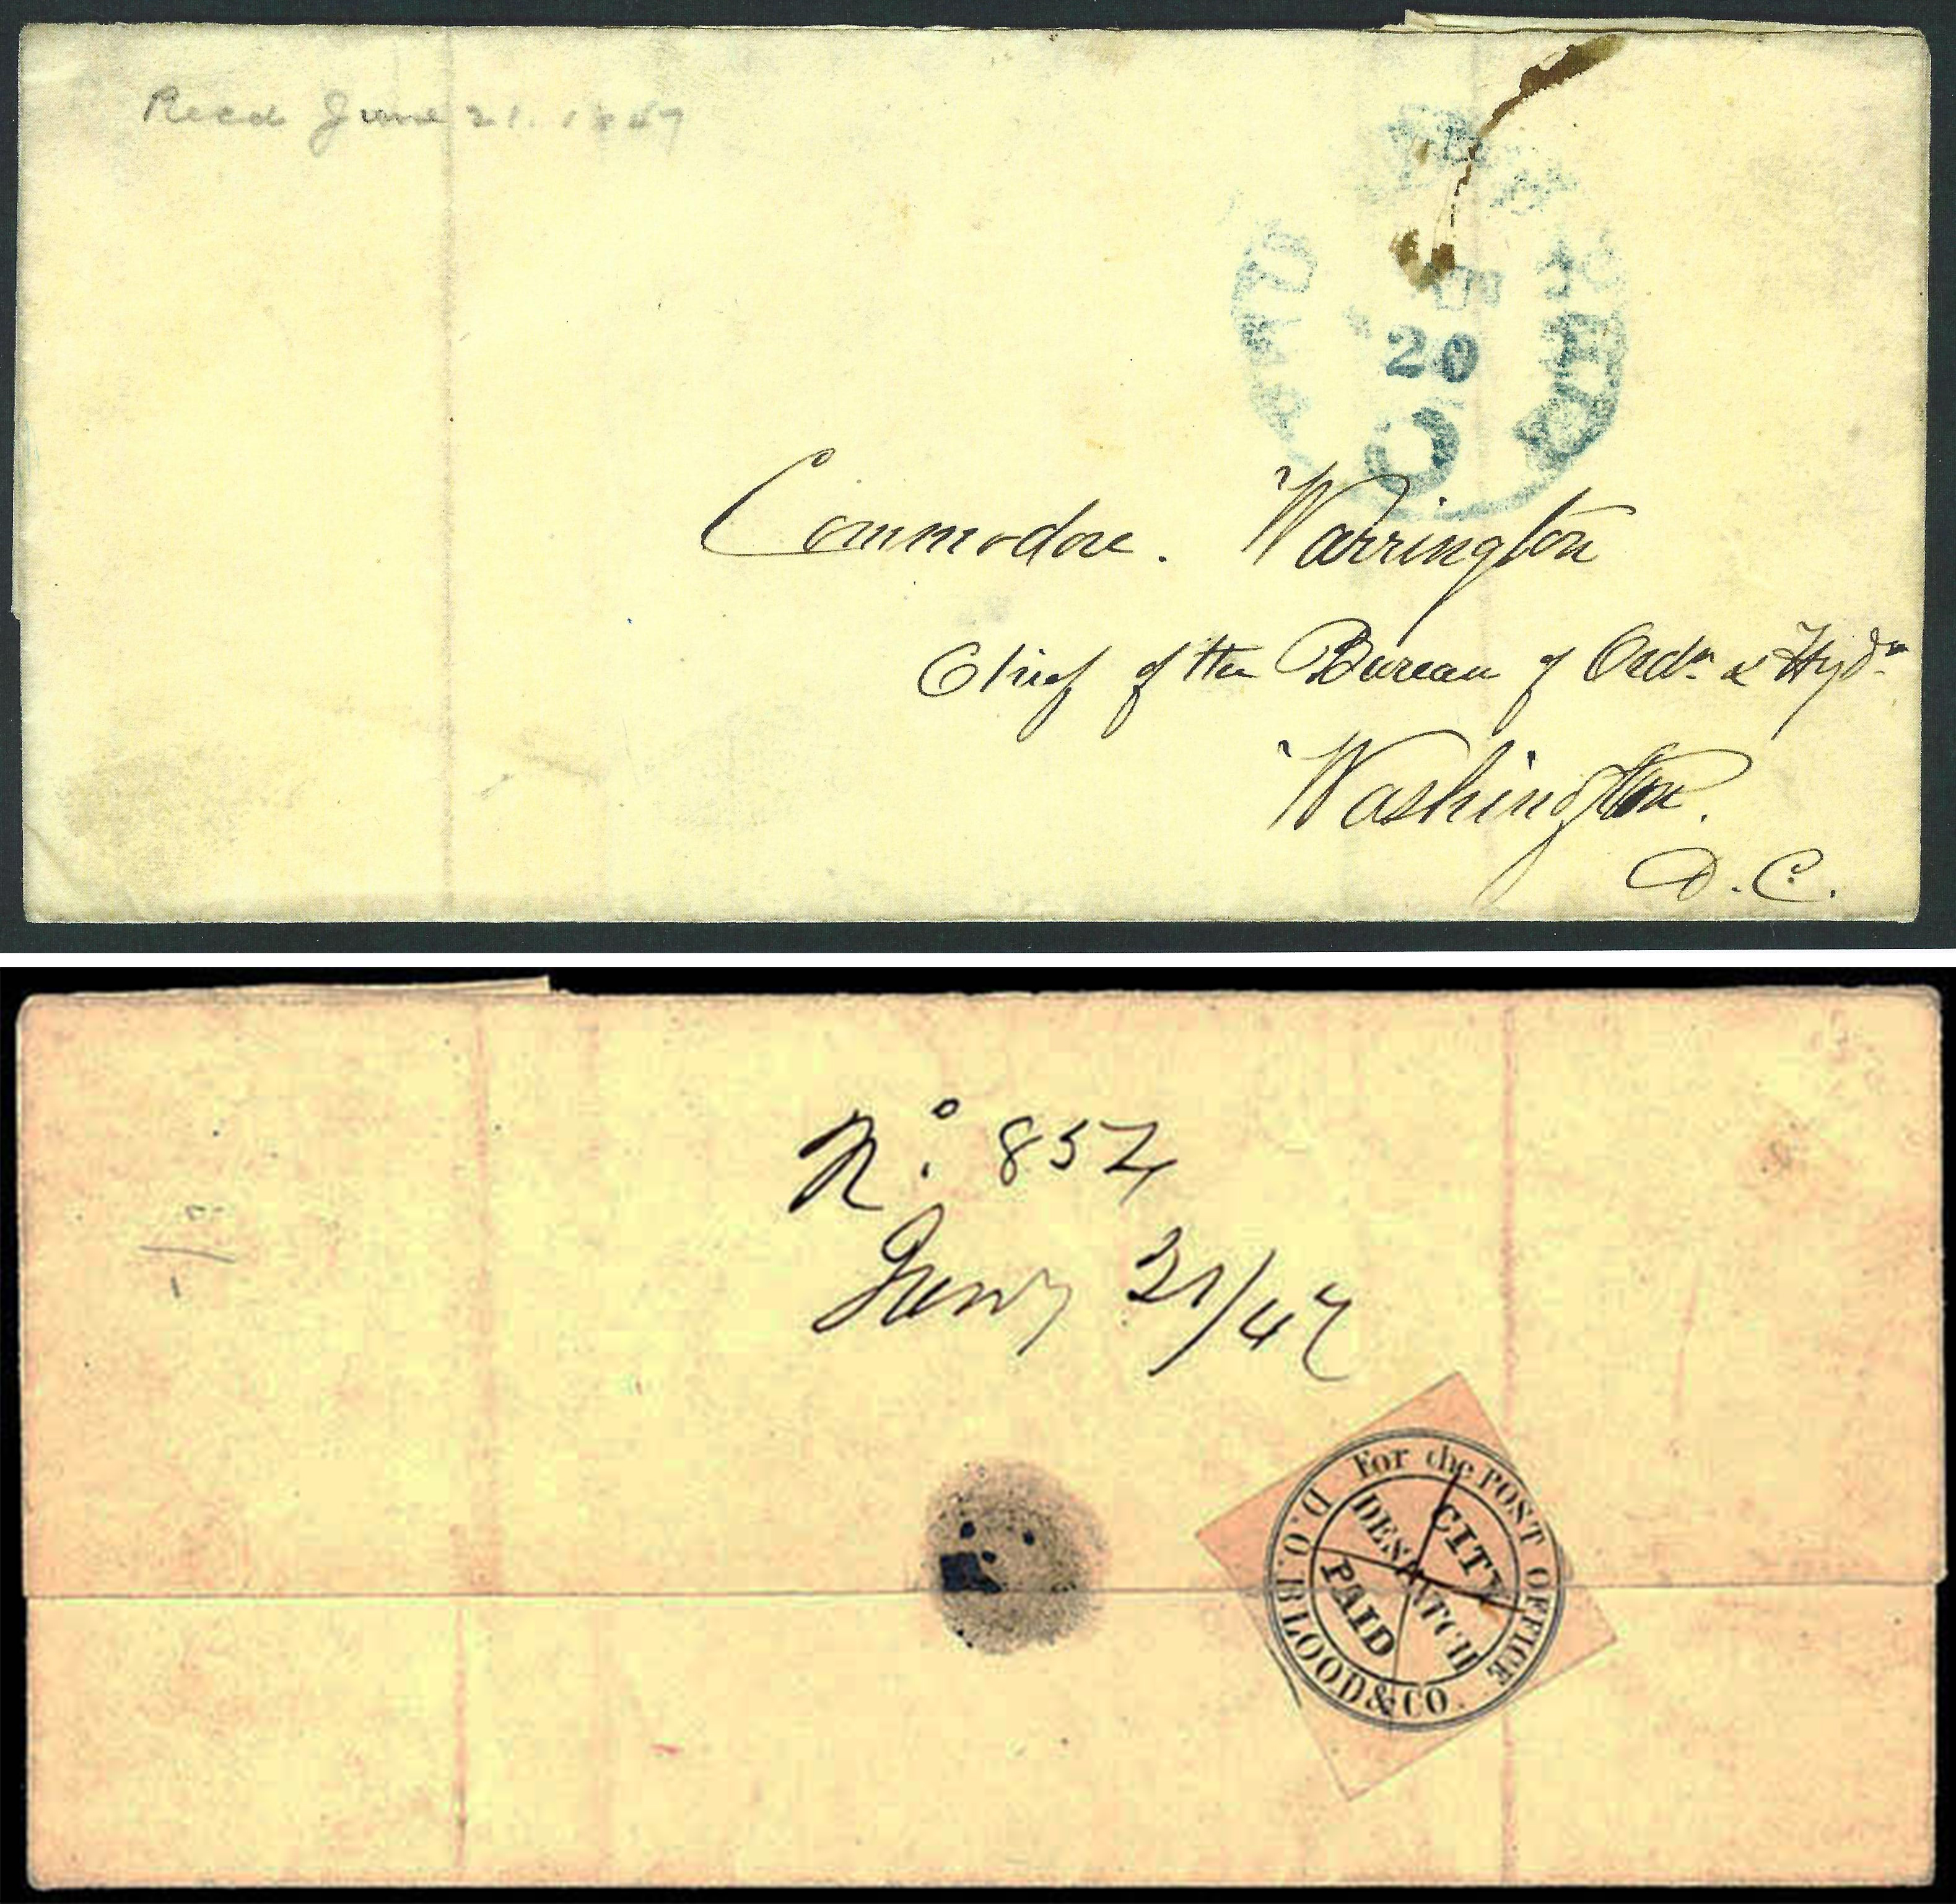 Recd June 21. 1847
20
Commodore. Warrington
Chief of the Bureau of Ordn & Hydn
Washington.
D. C.
No. 854
June 21/47
For the POST OFFICE
D.O. BLOOD & CO.
CITY
DESPATCH
PAID